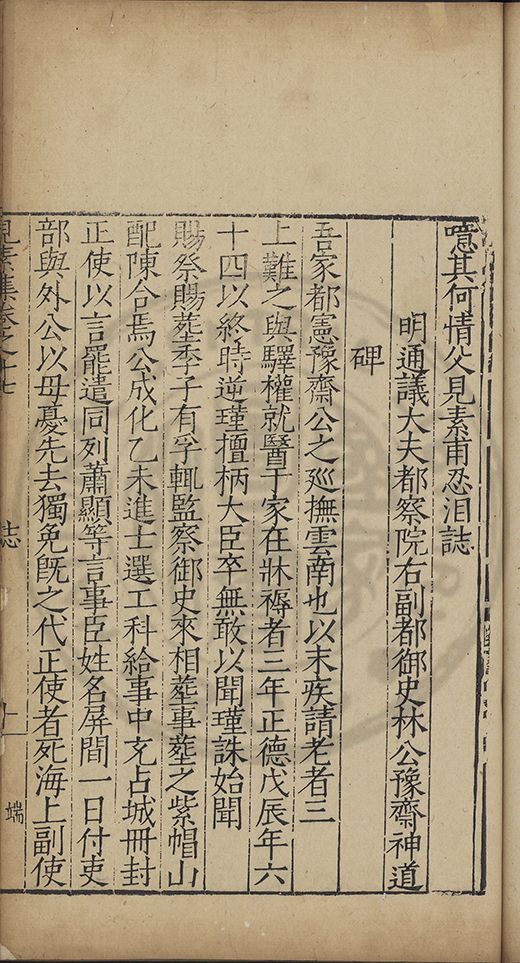 噫其何情父見素甫忍泪誌
明通議大夫都察院右副都御史林公豫齋神道
碑
吾家都憲豫齋公之廵撫雲南也以末疾請老者三
上難之與驛權就醫于家在牀褥者三年正德戊辰年六
十四以終時逆瑾擅柄大臣卒無敢以聞瑾誅始聞
賜祭賜葬季子有孚輒監察御史來相葬事塟之紫帽山
配陳合焉公成化乙未進士選工科給事中充占城冊封
正使以言罷遣同列蕭顯等言事臣姓名屏間一日付吏
部與外公以母憂先去獨免旣之代正使者死海上副使
見素集卷之十七
誌
十一
端